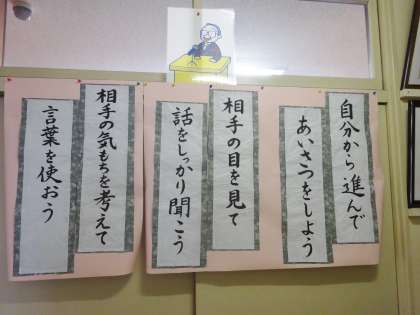 自分から進んで
あいさつをしよう
相手の目を見て
話をしっかり聞こう
相手の気もちを考えて
言葉を使おう